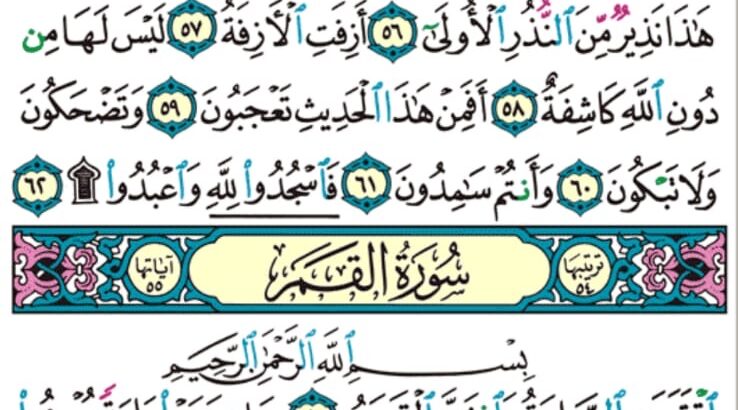 هَٰذَا نَذِيرٌ مِّنَ ٱلنُّذُرِ ٱلْأُولَىٰٓ ٥٦ أَزِفَتِ ٱلْأَزِفَةُ ٥٧ لَيْسَ لَهَا مِن
دُونِ ٱللَّهِ كَاشِفَةٌ ٥٨ أَفَمِنْ هَٰذَا ٱلْحَدِيثِ تَعْجَبُونَ ٥٩ وَتَضْحَكُونَ
وَلَا تَبْكُونَ ٦٠ وَأَنتُمْ سَٰمِدُونَ ٦١ فَٱسْجُدُوا۟ لِلَّهِ وَٱعْبُدُوا۟ ۩ ٦٢
ترتيبها ٥٤ سُورَةُ القَمَر آياتها ٥٥
بِسْمِ ٱللَّهِ ٱلرَّحْمَٰنِ ٱلرَّحِيمِ